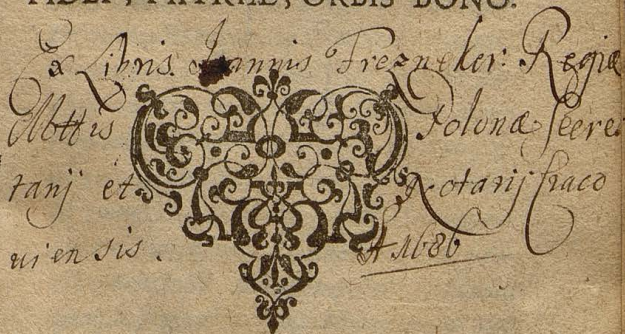 FIDEI, PATRIÆ, ORBIS BONO.
Ex Libris Joannis Frezneker Regiæ
Mttis Polonæ Secre
tarij et Notarij Craco
viensis. A 1686